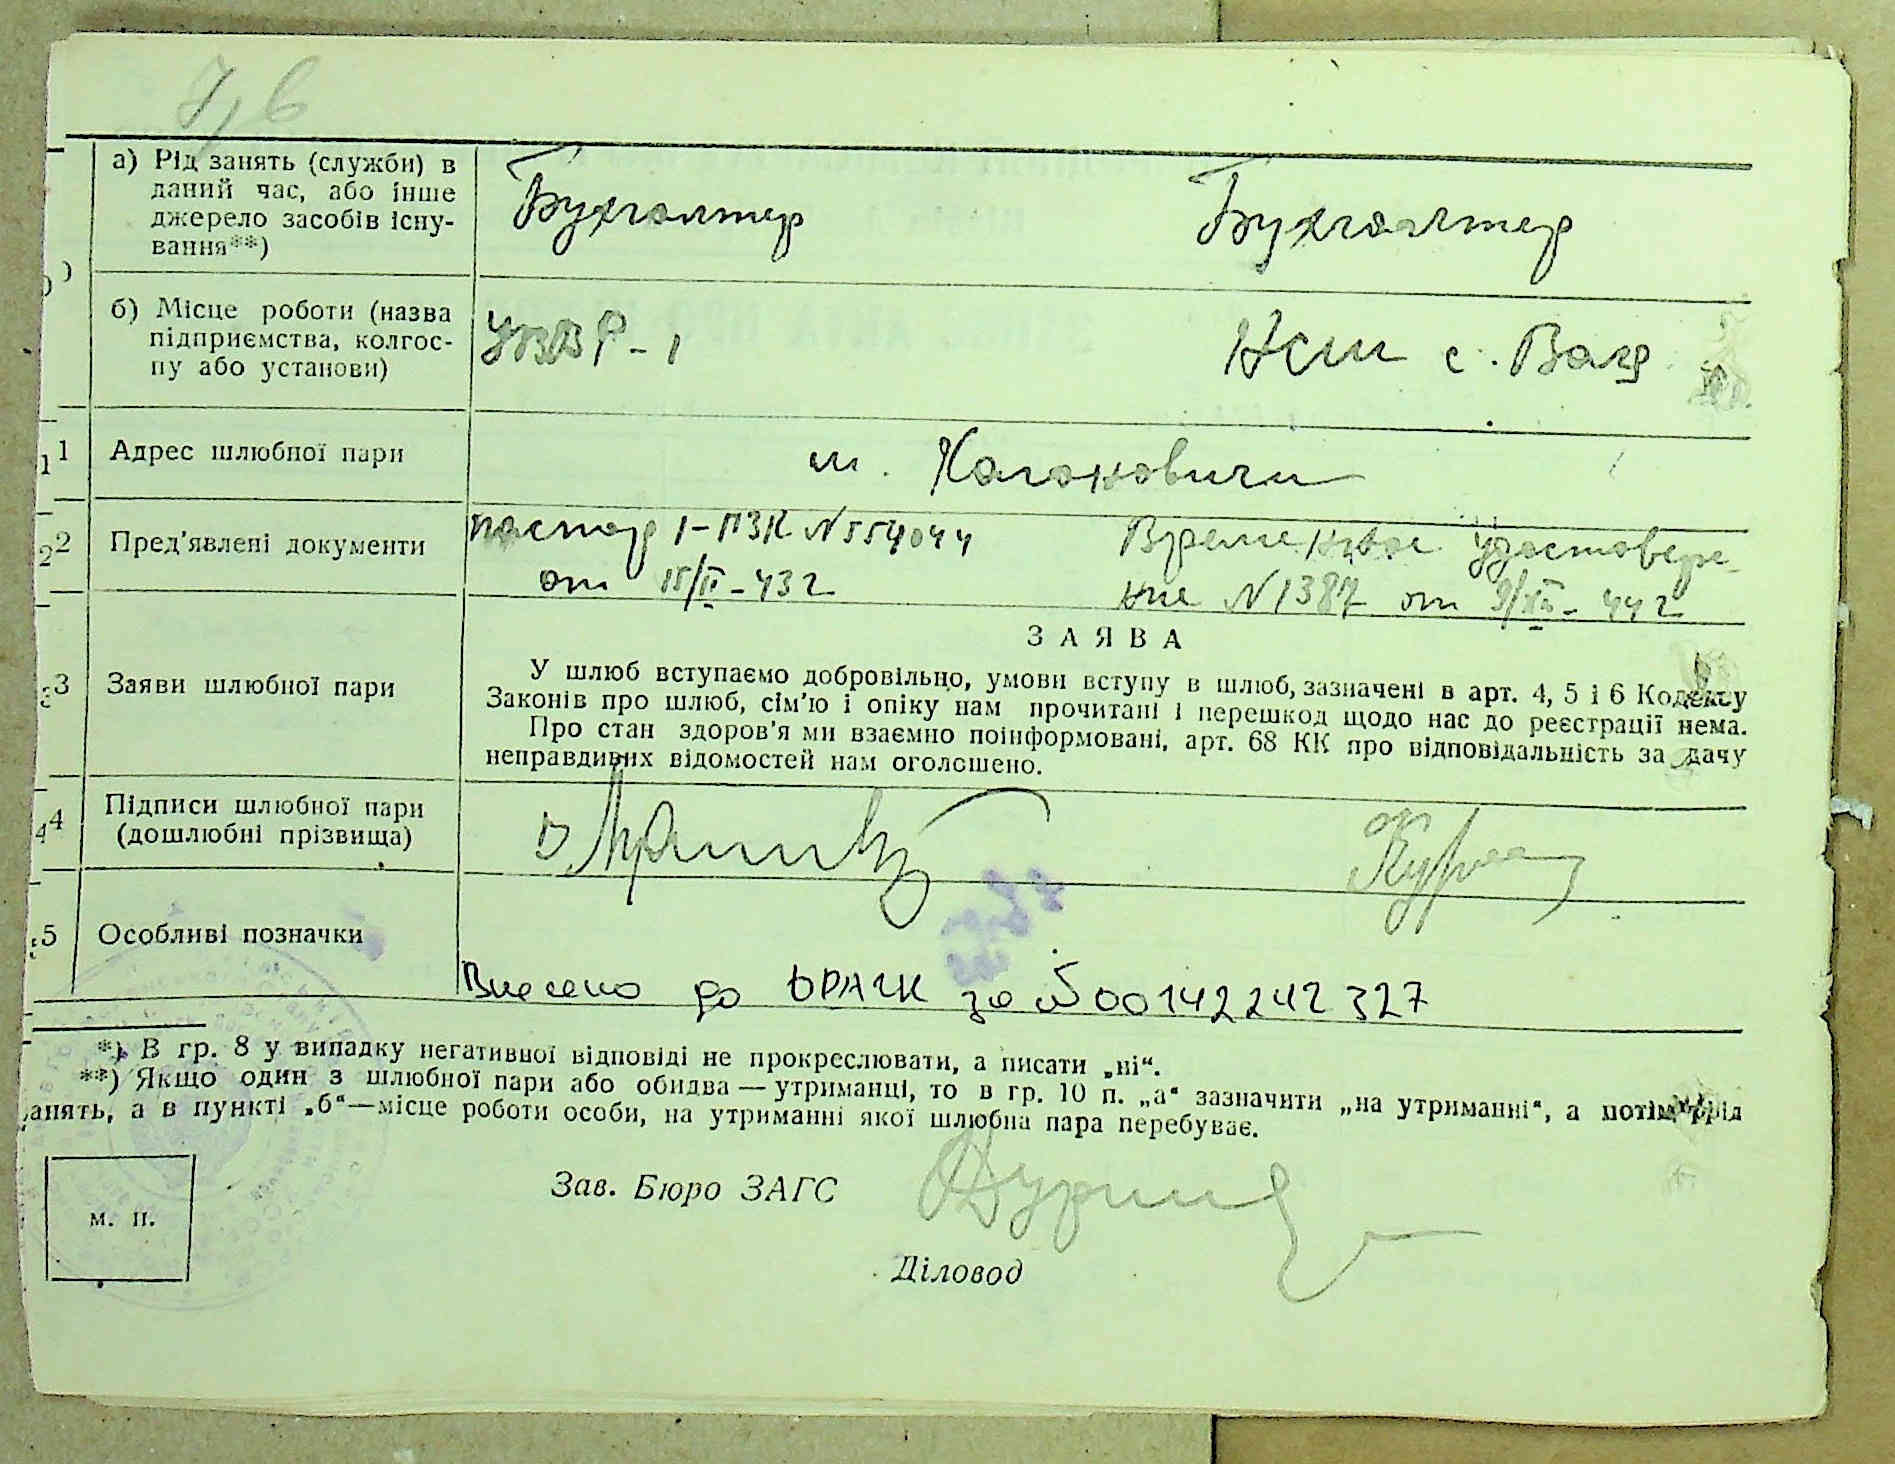 а) Рід занять (служби) в
даний час, або інше
джерело засобів існу-
вання**)
Бухгалтер
Бухгалтер
б) Місце роботи (назва
підприємства, колгос-
пу або установи)
УВВР-1
НСШ с. Вац
11 Адрес шлюбної пари
м. Каганович
22 Пред'явлені документи
паспор 1-ПЗК N 554044
от 15/II-43 г
Временное удостовере-
ние N 1387 от 9/XII-44 г
3 Заяви шлюбної пари
ЗАЯВА
У шлюб вступаємо добровільно, умови вступу в шлюб, зазначені в арт. 4, 5 і 6 Кодексу
Законів про шлюб, сім'ю і опіку нам прочитані і перешкод щодо нас до реєстрації нема.
Про стан здоров'я ми взаємно поінформовані, арт. 68 КК про відповідальність за дачу
неправдивих відомостей нам оголошено.
4 Підписи шлюбної пари
(дошлюбні прізвища)
5 Особливі позначки
Внесено до ДРАЦС за №00142242327
*) В гр. 8 у випадку негативної відповіді не прокреслювати, а писати „ні“.
**) Якщо один з шлюбної пари або обидва — утриманці, то в гр. 10 п. „а“ зазначити „на утриманні“, а потім рід
занять, а в пункті „б“—місце роботи особи, на утриманні якої шлюбна пара перебуває.
м. п.
Зав. Бюро ЗАГС
Діловод